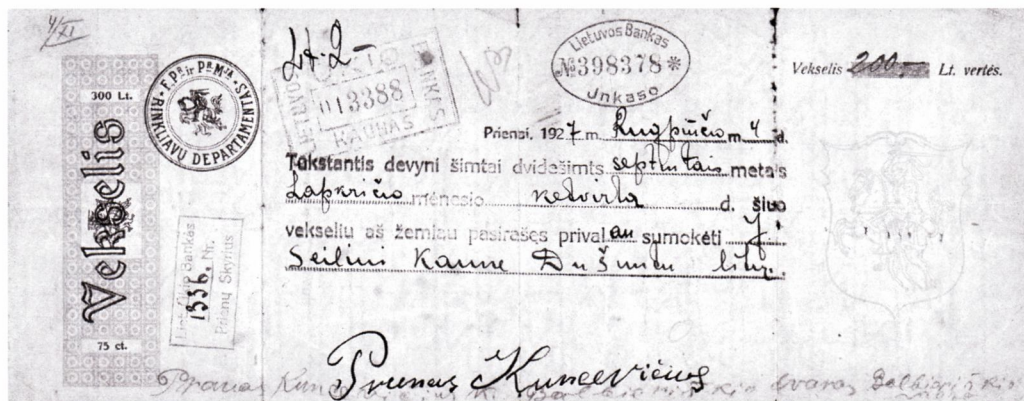 4/XI
300 Lt.
Vekselis
75 ct.
F. P-tė ir P-ė M-ja
RINKLIAVŲ DEPARTAMENTAS
Lt. 2
LIETUVOS
BANKAS
013388
KAUNAS
Lietuvos Bankas
№398378 *
Inkaso
Vekselis 200,- Lt. vertės.
1336. Nr.
Prienų Skyrius
Prienai, 1927 m. Rugpiučio m. 4 d.
Tūkstantis devyni šimtai dvidešimts septintais metais
Lapkričio mėnesio ketvirtą d. šiuo
vekseliu aš žemiau pasirašęs privalau sumokėti J.
Seilini Kaune Du šimtu litų
Pranas Kuncevičius
Pranas dvaras